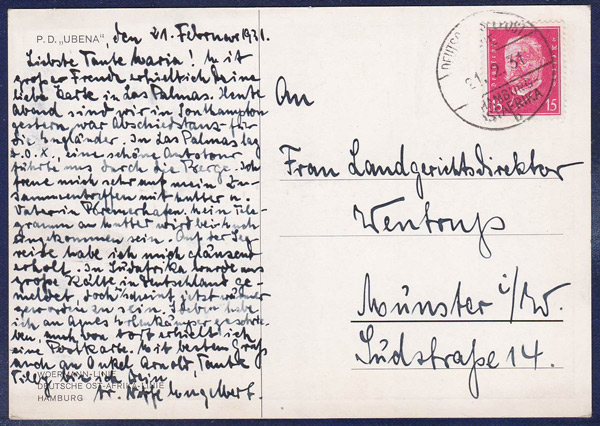 P. D. „UBENA“, den 21. Februar 1931.
Liebste Tante Maria! Mit
großer Freude erhielt ich Deine
liebe Karte in Las Palmas. Heute
Abend sind wir in Southampton
gestern war Abschiedstanz für
die Engländer. In Las Palmas lag
eine schöne Autotour
führte uns durch die Berge. Ich
freue mich sehr auf mein Zu-
sammentreffen mit Mutter u.
Vater in Bremerhafen. Mein Tele-
gramm an Mutter wird
angekommen sein. Auf der See-
reise habe ich mich glänzend
erholt. In Südafrika wurde uns
große Kälte in Deutschland ge-
meldet, doch scheint jetzt wärmer
geworden zu sein. Soeben habe
ich an Agnes geschrie-
ben, auch von dort erhielt ich
eine Postkarte. Mit besten Grüß
auch an Onkel Arnold, Tante
Tilly bin ich Dein
Engelbert.
WOERMANN-LINIE
DEUTSCHE OST-AFRIKA-LINIE
HAMBURG
An
Frau Landgerichtsdirektor
Wentrup
Münster i/W.
Südstraße 14.
15 15